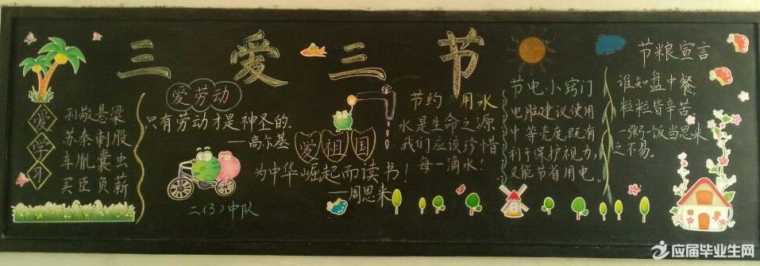 三爱三节
爱学习
孙敬悬梁
苏秦刺股
车胤囊虫
买臣负薪
爱劳动
只有劳动才是神圣的.
——高尔基
二(3)中队
爱祖国
为中华崛起而读书!
——周恩来
节约 用水
水是生命之源
我们应该珍惜
每一滴水!
节电小窍门
电脑建议使用
中等亮度既有
利于保护视力,
又能节省用电。
节粮宣言
谁知盘中餐
粒粒皆辛苦
一粥一饭当思来
之不易。
应届毕业生网